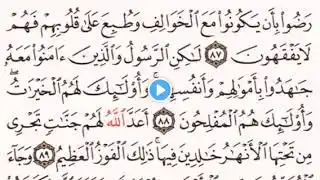 رَضُوا۟ بِأَن يَكُونُوا۟ مَعَ ٱلْخَوَالِفِ وَطُبِعَ عَلَىٰ قُلُوبِهِمْ فَهُمْ
لَا يَفْقَهُونَ ٨٧ لَٰكِنِ ٱلرَّسُولُ وَٱلَّذِينَ ءَامَنُوا۟ مَعَهُۥ
جَٰهَدُوا۟ بِأَمْوَٰلِهِمْ وَأَنفُسِهِمْ ۚ وَأُو۟لَٰٓئِكَ لَهُمُ ٱلْخَيْرَٰتُ ۖ
وَأُو۟لَٰٓئِكَ هُمُ ٱلْمُفْلِحُونَ ٨٨ أَعَدَّ ٱللَّهُ لَهُمْ جَنَّٰتٍ تَجْرِى
مِن تَحْتِهَا ٱلْأَنْهَٰرُ خَٰلِدِينَ فِيهَا ۚ ذَٰلِكَ ٱلْفَوْزُ ٱلْعَظِيمُ ٨٩ وَجَآءَ